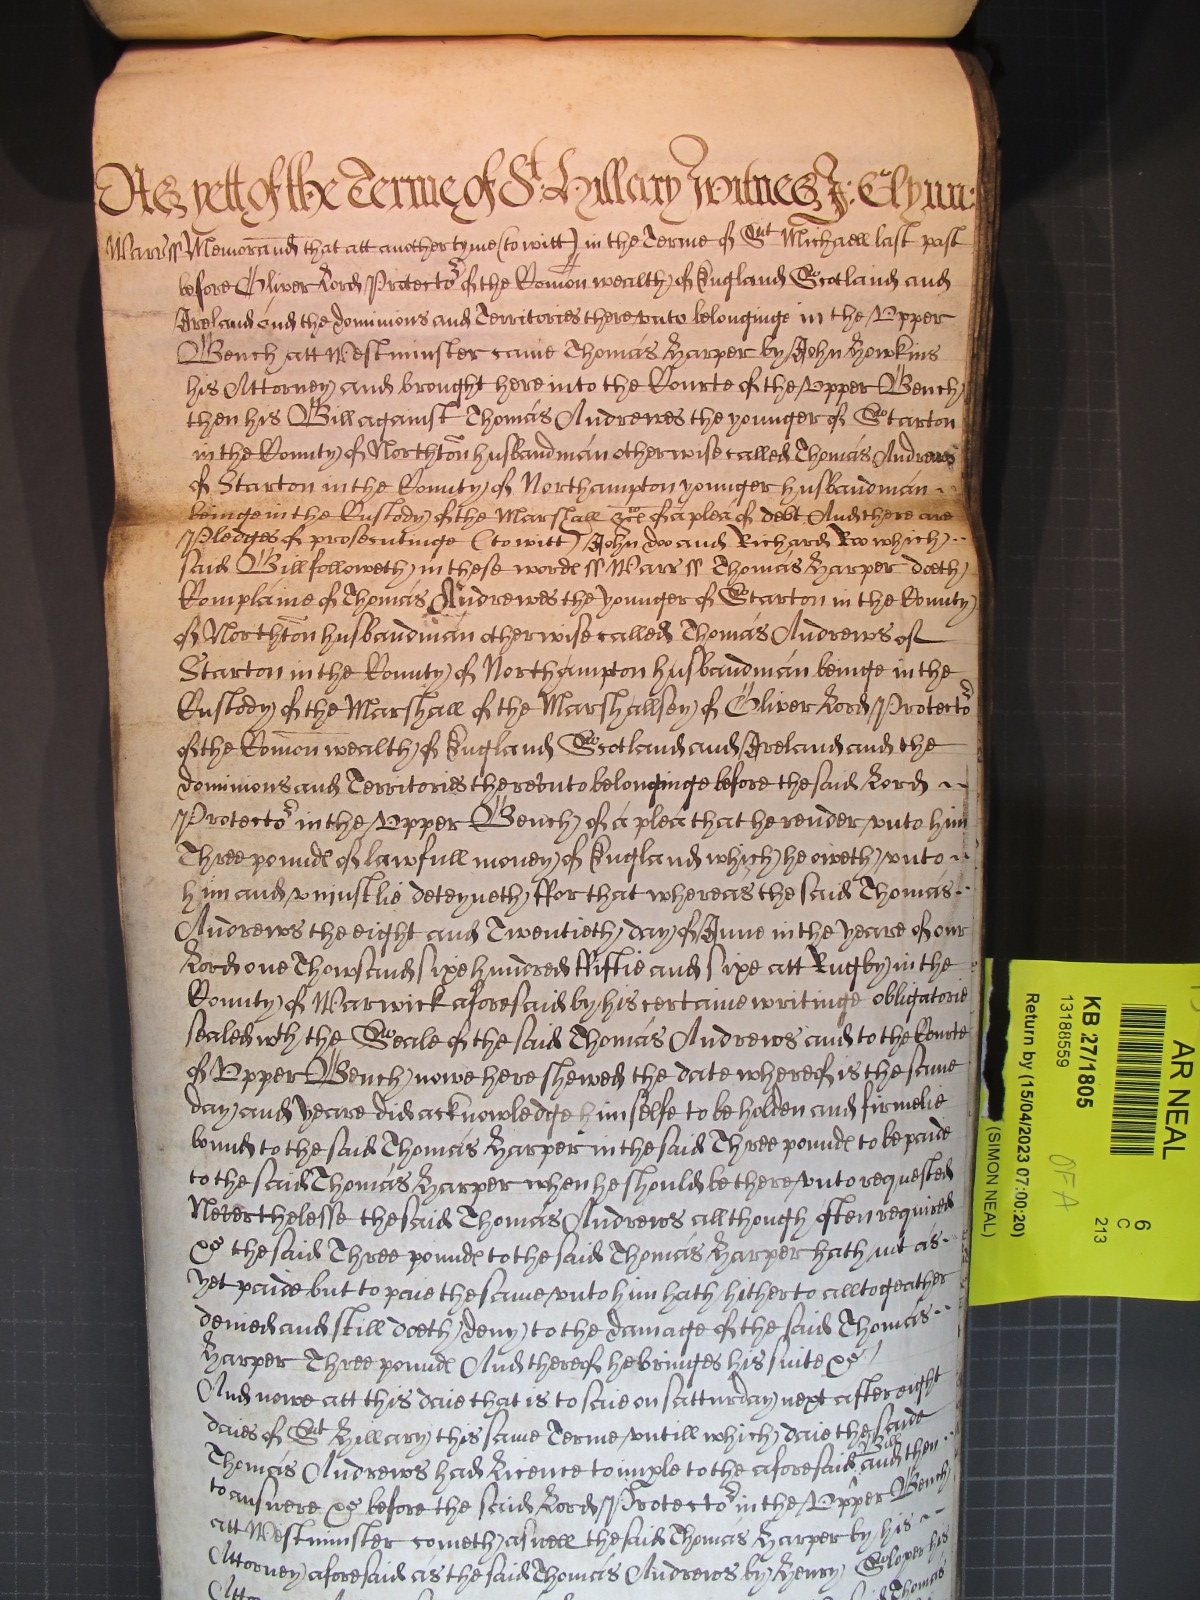 As yett of the Terme of St. Hillary witnes J: Glynn:
Warr ss Memorand that att another tyme (to witt) in the Terme of Snt Michaell last past
before Oliver Lord Protector of the Comon wealth of England Scotland and
Ireland and the dominions and Territories therevnto belonginge in the Vpper
Bench att Westminster came Thomas Harper by John Howkins
his Attorney and brought here into the Courte of the Vpper Bench
then his Bill against Thomas Andrewes the younger of Starton
in the County of Northton husbandman otherwise called Thomas Andrews
of Starton in the County of Northampton younger husbandman
beinge in the Custody of the Marshall &c of a plea of debt And there are
Pledges of prosecutinge (to witt) John doo and Richard Roo which
said Bill followeth in these words ss Warr ss Thomas Harper doeth
Complaine of Thomas Andrewes the younger of Starton in the County
of Northton husbandman otherwise called Thomas Andrews of
Starton in the County of Northampton husbandman beinge in the
Custody of the Marshall of the Marshallsey of Oliver Lord Protector
of the Comon wealth of England Scotland and Ireland and the
dominions and Territories therevnto belonginge before the said Lord
Protector in the Vpper Bench of a plea that he render vnto him
Three pounds of lawfull money of England which he oweth vnto
him and vniustlie deteyneth ffor that whereas the said Thomas
Andrews the eight and Twentieth day of June in the yeare of our
Lord one Thowsand sixe hundred ffiftie and sixe att Rugby in the
County of Warwick aforesaid by his certaine writinge obligatorie
sealed wth the Seale of the said Thomas Andrews and to the Courte
of Vpper Bench nowe here shewed the date whereof is the same
day and yeare did acknowledge himselfe to be holden and firmelie
bound to the said Thomas Harper in the said Three pounds to be paide
to the said Thomas Harper when he should be therevnto requested
Neverthelesse the said Thomas Andrews allthough often required
&c the said Three pounds to the said Thomas Harper hath not as
yet paide but to paie the same vnto him hath hitherto alltogeather
denied and still doeth deny to the damage of the said Thomas
Harper Three pounds And thereof he bringes his suite &c
And nowe att this daie that is to saie on Satturday next after eight
daies of Snt Hillary this same Terme vntill which daie the saide
Thomas Andrews had Licence to imple to the aforesaid Bill and then
to answere &c before the said Lord Protector in the Vpper Bench
att Westminster cometh aswell the said Thomas Harper by his
Attorney aforesaid as the said Thomas Andrews by Henry Gloper his
AR NEAL
KB 27/1805
13188559
Return by (15/04/2023 07:00:20)
(SIMON NEAL)
6
C
213